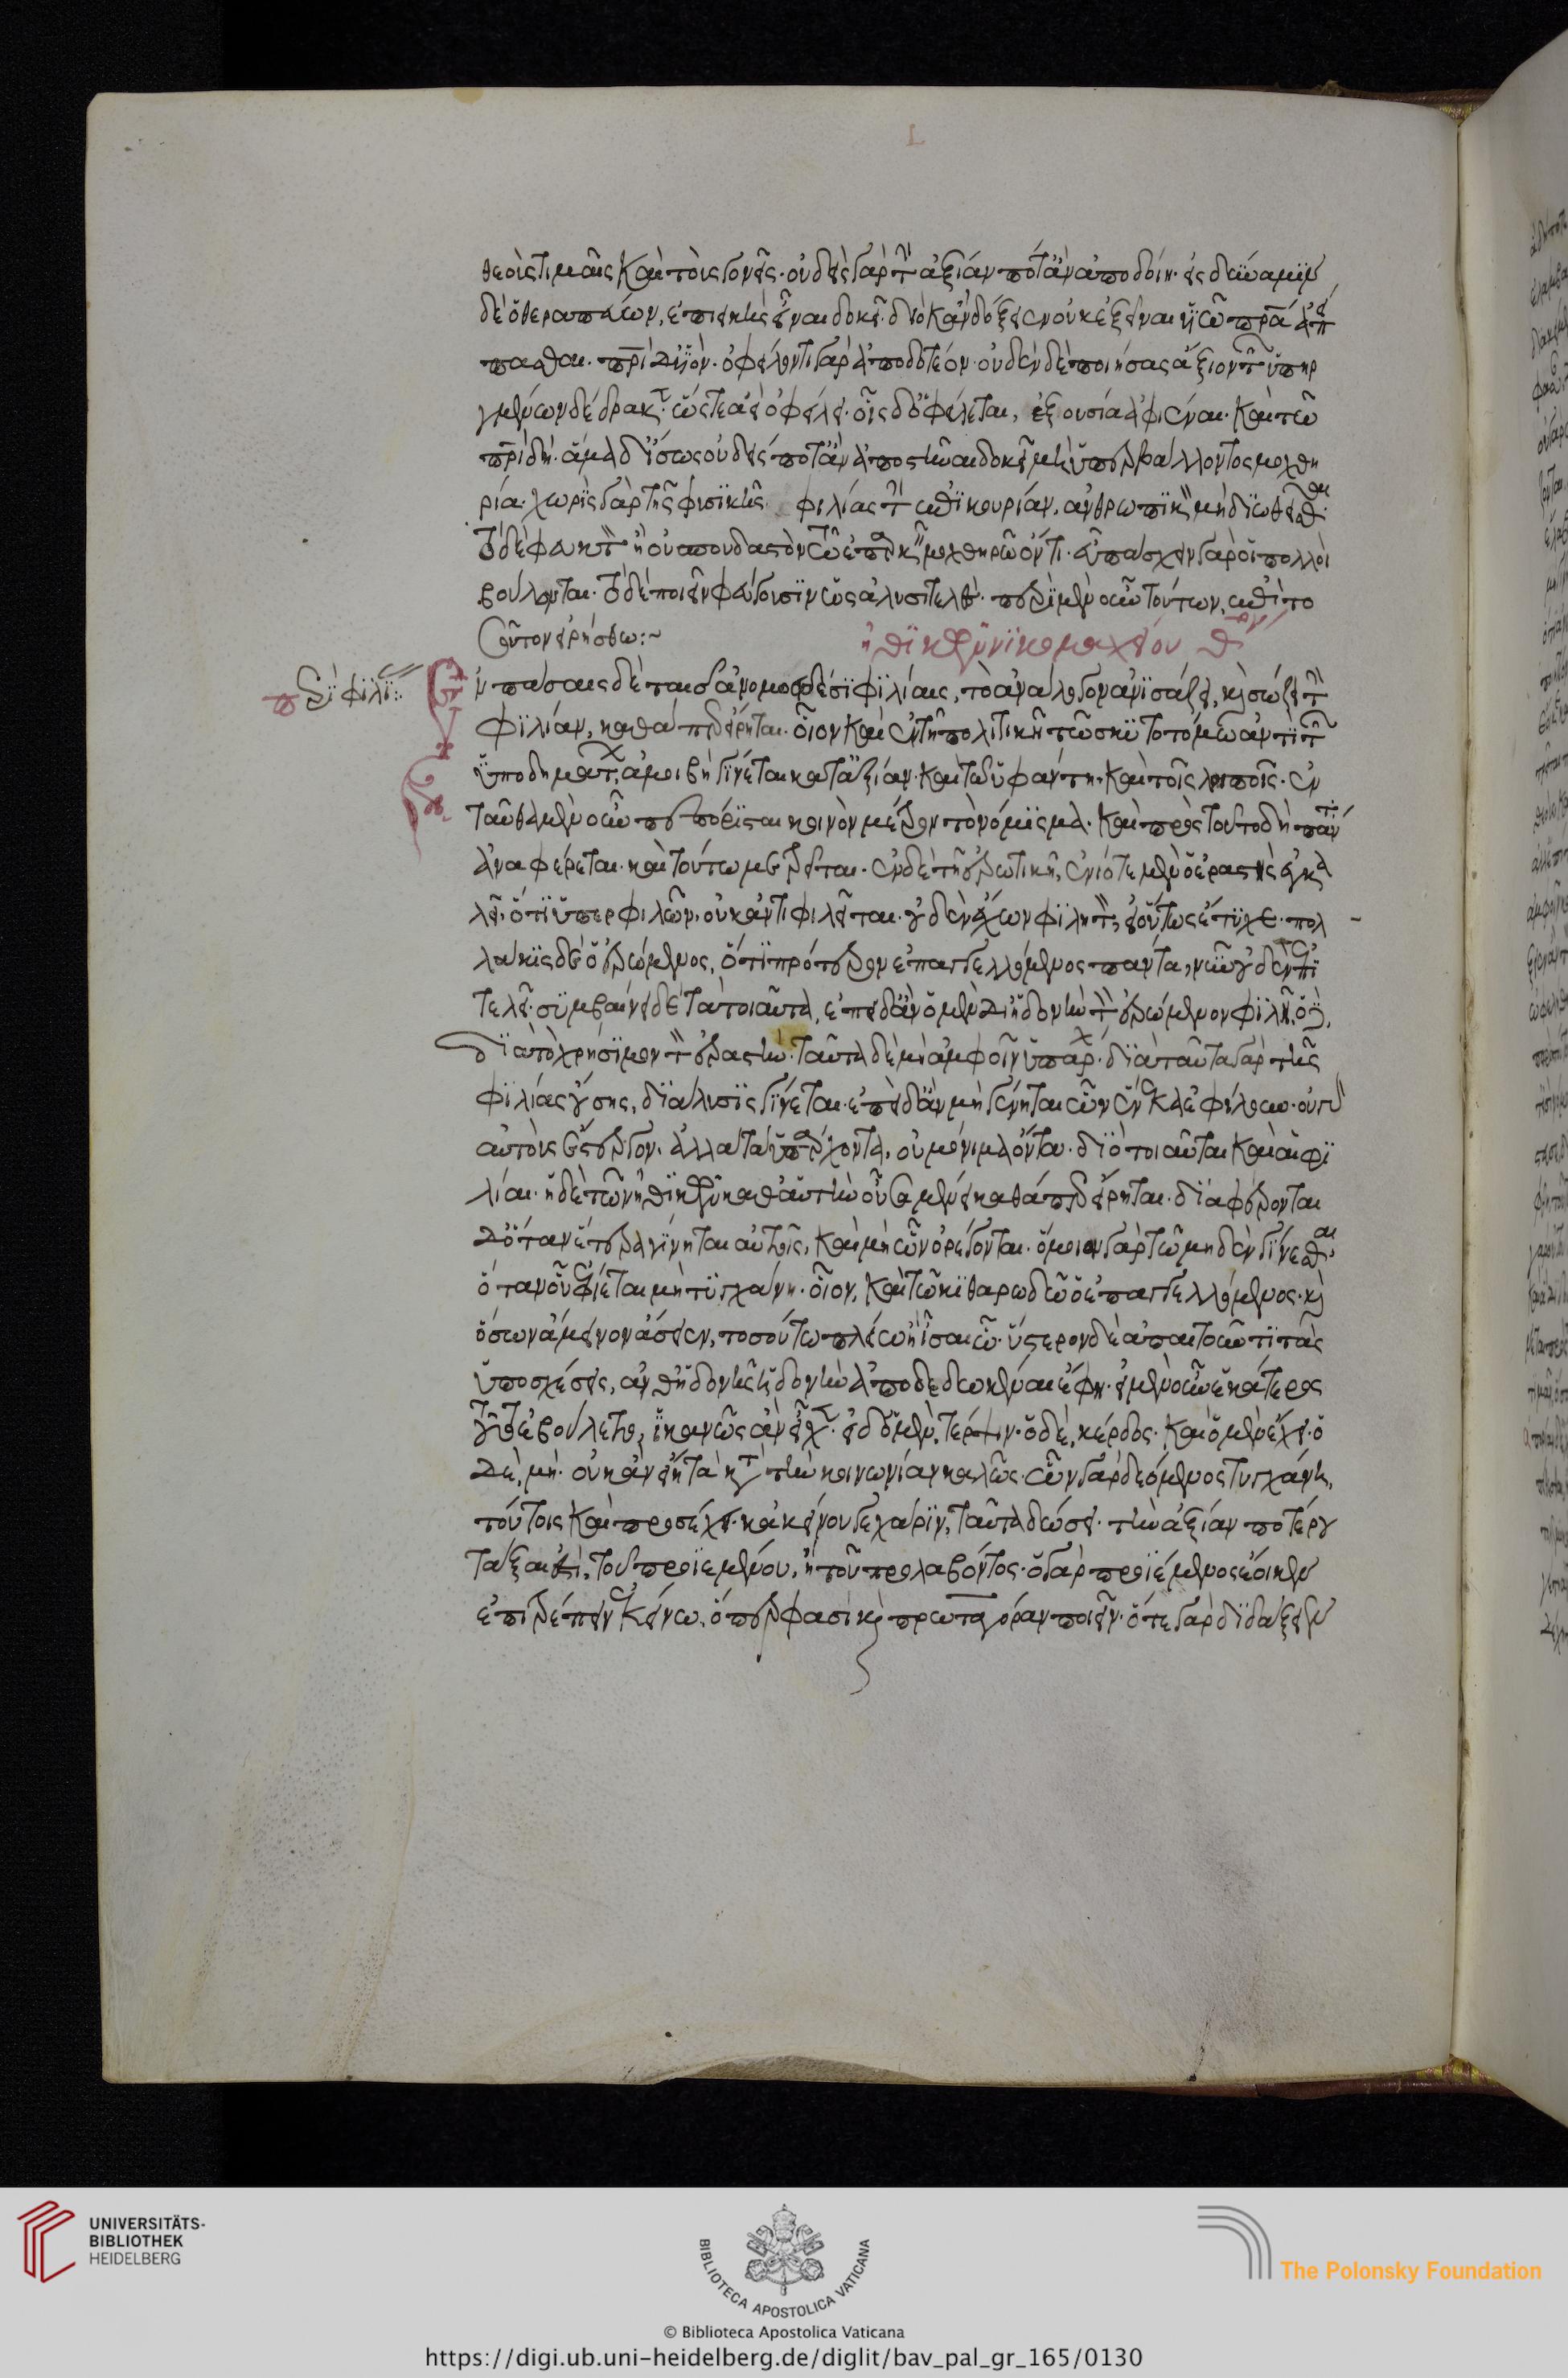 θεοῖς τιμαῖς καὶ τοῖς γονεῖς· οὐδεὶς γὰρ τὴν ἀξίαν ποτ' ἂν ἀποδοίη· εἰς δύναμιν
δὲ ὁ θεραπεύων, ἐπιεικὴς εἶναι δοκεῖ· διὸ κἂν δόξειεν οὐκ ἐξεῖναι υἱῷ πατέρα ἀπεί
πασθαι· πατρὶ δ' υἱόν· ὀφείλοντι γὰρ ἀποδοτέον· οὐδὲν δὲ ποιήσας ἄξιον τῶν ὑπηρ
γμένων δέδρακεν· ὥστε ἀεὶ ὀφείλει· οἷς δ' ὀφείλεται, ἐξουσία ἀφεῖναι· καὶ τῷ
πατρὶ δή· ἅμα δ' ἴσως οὐδείς ποτ' ἂν ἀποστῆναι δοκεῖ μὴ ὑπερβάλλοντος μοχθη
ρίᾳ· χωρὶς γὰρ τῆς φυσικῆς φιλίας τὴν ἐπικουρίαν, ἀνθρωπικὸν μὴ διωθεῖσθαι·
τῷ δὲ φευκτὸν ἢ οὐ σπουδαστὸν τὸ ἐπαρκεῖν μοχθηρῷ ὄντι· εὖ πάσχειν γὰρ οἱ πολλοὶ
βούλονται· τὸ δὲ ποιεῖν φεύγουσιν ὡς ἀλυσιτελές· περὶ μὲν οὖν τούτων, ἐπὶ το
σοῦτον εἰρήσθω:~ ἠθικῶν νικομαχείων θον
περὶ φιλίας:
Ἐν πάσαις δὲ ταῖς ἀνομοιοειδέσι φιλίαις, τὸ ἀνάλογον ἀνισάζει, καὶ σώζει τὴν
φιλίαν, καθάπερ εἴρηται· οἷον καὶ ἐν τῇ πολιτικῇ τῷ σκυτοτόμῳ ἀντὶ τῶν
ὑποδημάτων, ἀμοιβὴ γίνεται κατ' ἀξίαν· καὶ τῷ ὑφάντῃ· καὶ τοῖς λοιποῖς· ἐν
ταῦθα μὲν οὖν πεπόρισται κοινὸν μέτρον τὸ νόμισμα· καὶ πρὸς τοῦτο δὴ πάντα
ἀναφέρεται· καὶ τούτῳ μετρεῖται· ἐν δὲ τῇ ἐρωτικῇ, ἐνίοτε μὲν ὁ ἐραστὴς ἐγκα
λεῖ, ὅτι ὑπερφιλῶν, οὐκ ἀντιφιλεῖται· οὐδὲν ἔχων φιλητόν, εἰ οὕτως ἔτυχε· πολ
λάκις δὲ ὁ ἐρώμενος, ὅτι πρότερον ἐπαγγελλόμενος πάντα, νῦν οὐδὲν ἐπι
τελεῖ· συμβαίνει δὲ τὰ τοιαῦτα, ἐπειδὰν ὁ μὲν δι' ἡδονὴν τὸν ἐρώμενον φιλῇ, ὁ δὲ,
διὰ τὸ χρήσιμον τὸν ἐραστήν· ταῦτα δὲ μὴ ἀμφοῖν ὑπάρχῃ· διὰ ταῦτα γὰρ τῆς
φιλίας οὔσης, διάλυσις γίνεται· ἐπειδὰν μὴ γένηται ὧν ἕνεκα ἐφίλουν· οὐ γὰρ
αὐτοὺς ἔστεργον· ἀλλὰ τὰ ὑπάρχοντα, οὐ μόνιμα ὄντα· διὸ τοιαῦται καὶ αἱ φι
λίαι· ἡ δὲ τῶν ἠθικῶν καθ' αὑτὴν οὖσα μένει καθάπερ εἴρηται· διαφέρονται
δ' ὅταν ἕτερα γίνηται αὐτοῖς, καὶ μὴ ὧν ὀρέγονται· ὅμοιον γὰρ τῷ μηδὲν γίνεσθαι,
ὅταν οὗ ἐφίεται μὴ τυγχάνῃ· οἷον, καὶ τῷ κιθαρωδῷ ὁ ἐπαγγελλόμενος· καὶ
ὅσῳ ἄμεινον ᾄσειεν, τοσούτῳ πλείω ἡ ἶσαι ὦ· ὕστερον δὲ ἀπαιτοῦντι τὰς
ὑποσχέσεις, ἀνθ' ἡδονῆς ἡδονὴν ἀποδεδωκέναι ἔφη· εἰ μὲν οὖν ἑκάτερος
τοῦτο ἐβούλετο, ἱκανῶς ἂν εἶχεν· εἰ δ' ὁ μὲν, τέρψιν· ὁ δὲ, κέρδος· καὶ ὁ μὲν ἔχει· ὁ
δὲ, μή· οὐκ ἂν εἴη τὰ κατὰ τὴν κοινωνίαν καλῶς· ὧν γὰρ δεόμενος τυγχάνει,
τούτοις καὶ προσέχει· κἀκείνου γε χάριν, ταῦτα δώσει· τὴν ἀξίαν ποτέρου
τάξαι ἐστὶ, τοῦ προϊεμένου, ἢ τοῦ προλαβόντος· ὁ γὰρ προϊέμενος ἔοικεν
ἐπιτρέπειν ἐκείνῳ, ὅπερ φασὶ καὶ πρωταγόραν ποιεῖν· ὅτε γὰρ διδάξειεν
UNIVERSITÄTS-
BIBLIOTHEK
HEIDELBERG
BIBLIOTECA APOSTOLICA VATICANA
The Polonsky Foundation
© Biblioteca Apostolica Vaticana
https://digi.ub.uni-heidelberg.de/diglit/bav_pal_gr_165/0130